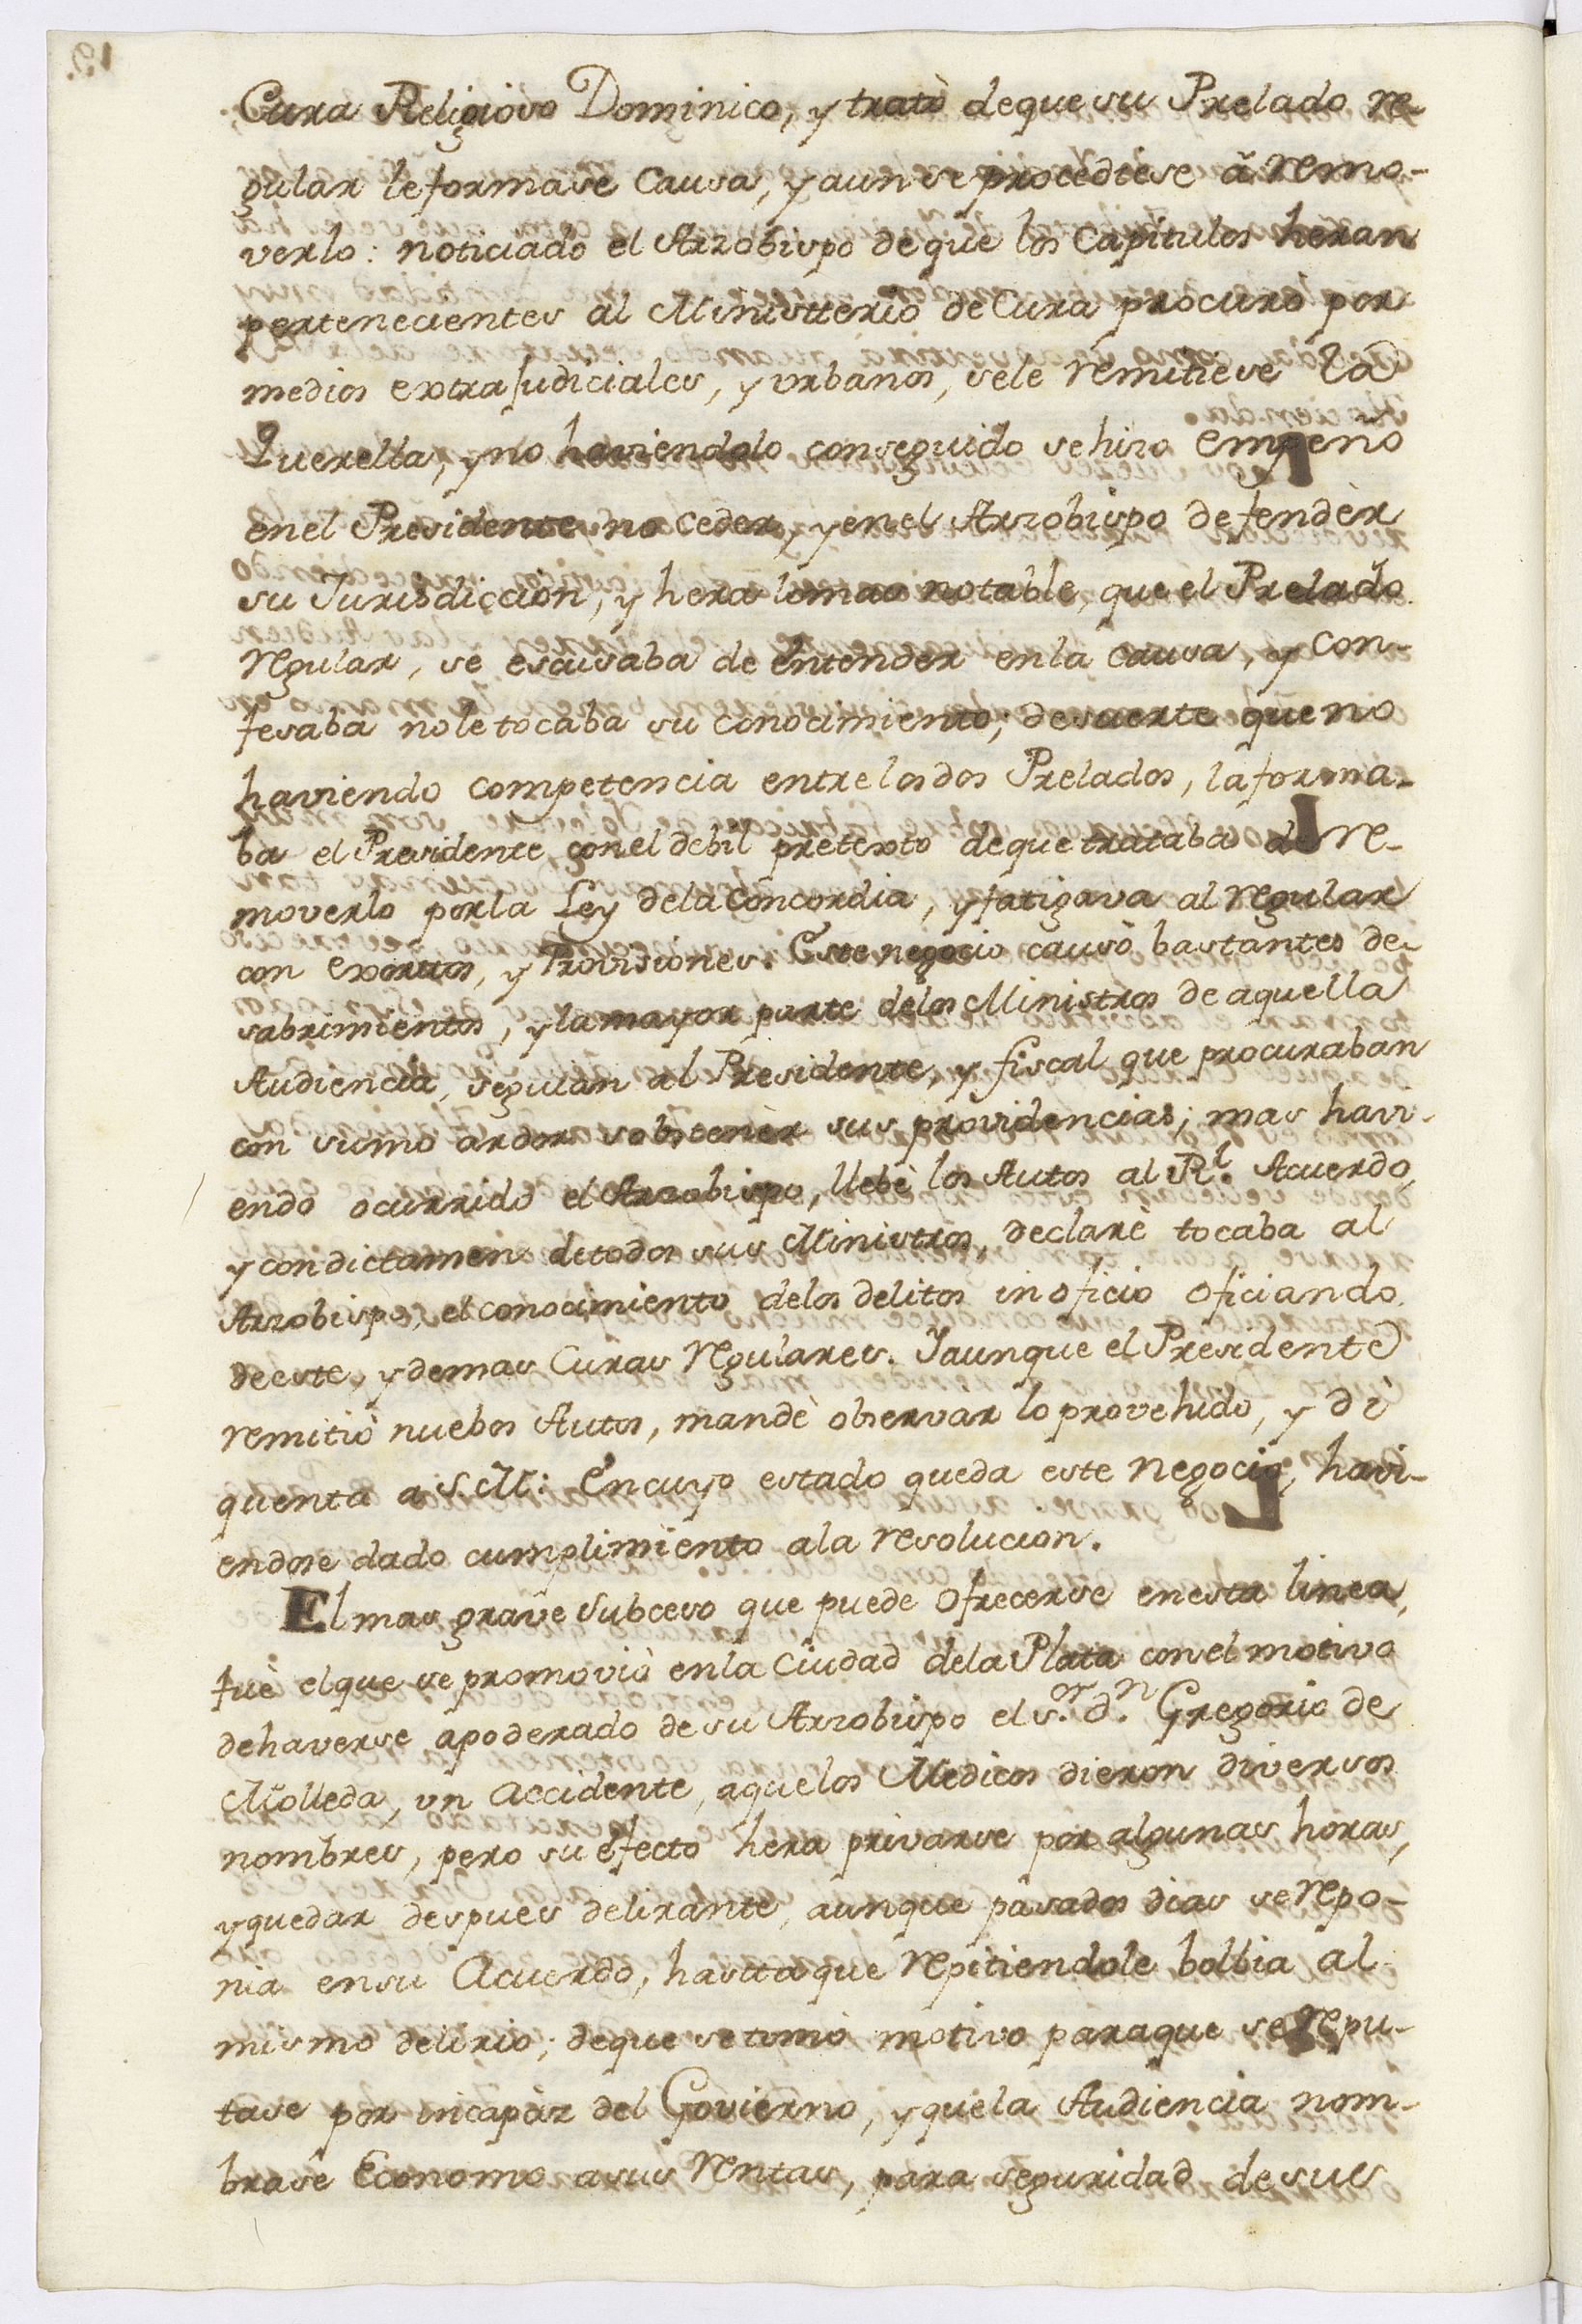 Cura Religioso Dominico, y tratò de que su Prelado re-
gular le formase Causa, y aun se procediese à remo-
verlo: noticiado el Arzobispo de que los Capitulos heran
pertenecientes al Ministterio de Cura procurò por
medios extrajudiciales, y vrbanos, sele remitiese la
Querella, y no haviendolo conseguido se hizo empeño
en el Presidente no ceder, y en el Arzobispo defendèr
su Jurisdiccion, y hera lo mas notable, que el Prelado
regular, se escusaba de entender en la causa, y con-
fesaba no le tocaba su conocimiento; de suerte que no
haviendo competencia entre los dos Prelados, la forma-
ba el Presidente, con el debil pretexto de que trataba de re-
moverlo por la Ley dela Concordia, y fatigava al regular
con exortos, y Provisiones. Este negocio causò bastantes de-
sabrimientos, y la mayor parte delos Ministros de aquella
Audiencia, seguian al Presidente, y fiscal que procuraban
con sumo ardor sobstenèr sus providencias; mas havi-
endo ocurrido el Arzobispo, llebè los Autos al Rl. Acuerdo,
y con dictamen de todos sus Ministros, declarè tocaba al
Arzobispo, el conocimiento delos delitos in oficio oficiando
de este, y demas Curas regulares. Y aunque el Presidente
remitiò nuebos Autos, mandè observar lo provehido, y di
quenta a S.M: En cuyo estado queda este negocio, havi-
endose dado cumplimiento ala resolucion.
El mas grave subceso que puede ofrecerse en esta linea,
fuè el que se promoviò en la Ciudad dela Plata con el motivo
de haverse apoderado de su Arzobispo el s.or d.n Gregorio de
Molleda, vn Accidente, aque los Medicos dieron diversos
nombres, pero su efecto hera privarse por algunas horas,
y quedar despues delirante, aunque pasados dias se repo-
nia en su Acuerdo, hastta que repitiendole bolbia al
mismo delirio; de que se tomò motivo para que se repu-
tase por incapàz del Govierno, y que la Audiencia nom-
brase Economo a sus rentas, para seguridad de sus